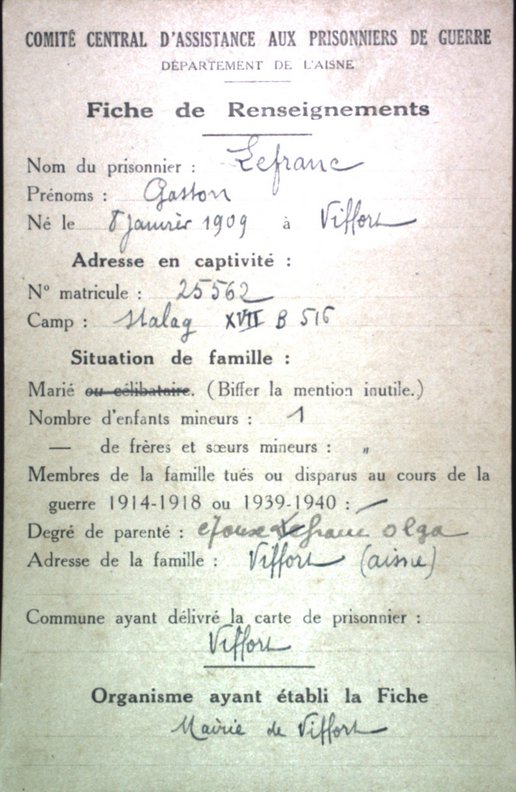 COMITÉ CENTRAL D'ASSISTANCE AUX PRISONNIERS DE GUERRE
DÉPARTEMENT DE L'AISNE
Fiche de Renseignements
Nom du prisonnier : Lefranc
Prénoms : Gaston
Né le 8 janvier 1909 à Viffort
Adresse en captivité :
N° matricule : 25562
Camp : Stalag XVII B 516
Situation de famille :
Marié ou célibataire. (Biffer la mention inutile.)
Nombre d'enfants mineurs : 1
— de frères et sœurs mineurs : "
Membres de la famille tués ou disparus au cours de la
guerre 1914-1918 ou 1939-1940 : —
Degré de parenté : Lefranc Olga
Adresse de la famille : Viffort (aisne)
Commune ayant délivré la carte de prisonnier :
Viffort
Organisme ayant établi la Fiche
Mairie de Viffort